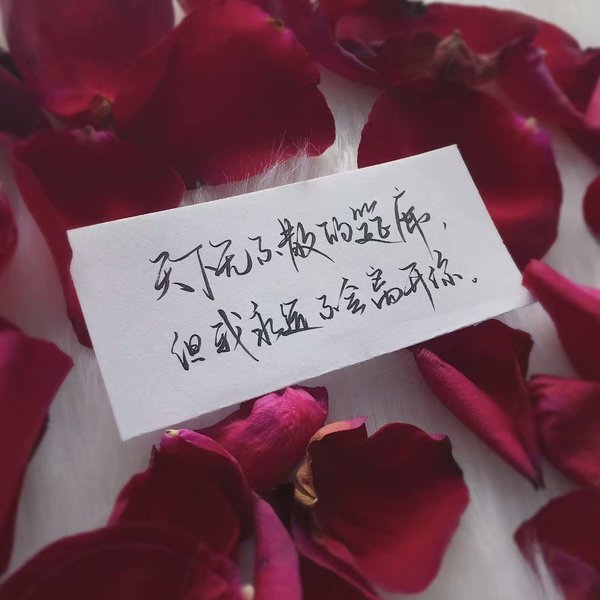 天下无不散的筵席，
但我永远不会离开你。